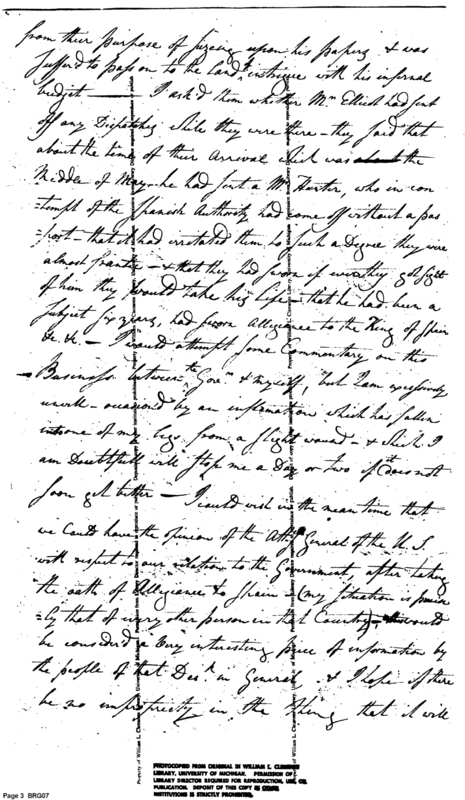 from their purpose of seizing upon his papers & was
suffer'd to pass on to the land of intrigue with his infernal
budjet — I ask'd them whether Mr. Ellicott had sent
off any Dispatches while they were there — they said that
about the time of their Arrival which was about the
Middle of May — he had sent a Mr. Harter, who in con
=tempt of the Spanish Authority had come off without a pas
=port — that it had irritated them to such a Degree they were
almost frantic — & that they had sworn if ever they got sight
of him they would take his Life — that he had been a
Subject years, had sworn Allegiance to the King of Spain
&c. &c. — I would attempt some Commentary on this
Business between the Govr. & myself, but I am excessively
unwell — occasion'd by an inflamation which has fallen
into one of my legs from a slight wound — & which I
am Doubtfull will stop me a Day or two if it does not
soon get better — I could wish in the mean time that
we could have the opinion of the Atty. General of the U. S.
with respect to our relation to the Government, after taking
the oath of Allegiance to Spain — (my situation is precise
=ly that of every other person in that Country) — would
be consider'd a very interesting piece of information by
the people of that in General & I hope if there
be no impropriety in the thing that it will
Property of William L. Clements Library
PHOTOCOPIED FROM ORIGINAL IN WILLIAM L. CLEMENTS
LIBRARY, UNIVERSITY OF MICHIGAN. PERMISSION OF
LIBRARY DIRECTOR REQUIRED FOR REPRODUCTION, USE, OR
PUBLICATION. DEPOSIT OF THIS COPY IN OTHER
INSTITUTIONS IS STRICTLY PROHIBITED.
Page 3 BRG07